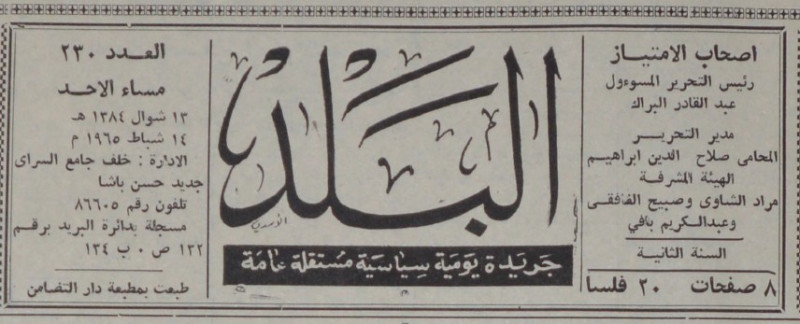 اصحاب الامتياز
رئيس التحرير المسوءول
عبد القادر البراك
مدير التحرير
المحامى صلاح الدين ابراهيم
الهيئة المشرفة
مراد الشاوى وصبيح الغافقى
وعبدالكريم بافي
السنة الثانية
٨ صفحات ٢٠ فلسا
البلد
جريدة يومية سياسية مستقلة عامة
العدد ٢٣٠
مساء الاحد
١٣ شوال ١٣٨٤ هـ
١٤ شباط ١٩٦٥ م
الادارة : خلف جامع السراى
جديد حسن باشا
تلفون رقم ٨٦٦٠٥
مسجلة بدائرة البريد برقم
١٢٢ ص ٠ ب ١٣٤
طبعت بمطبعة دار التضامن